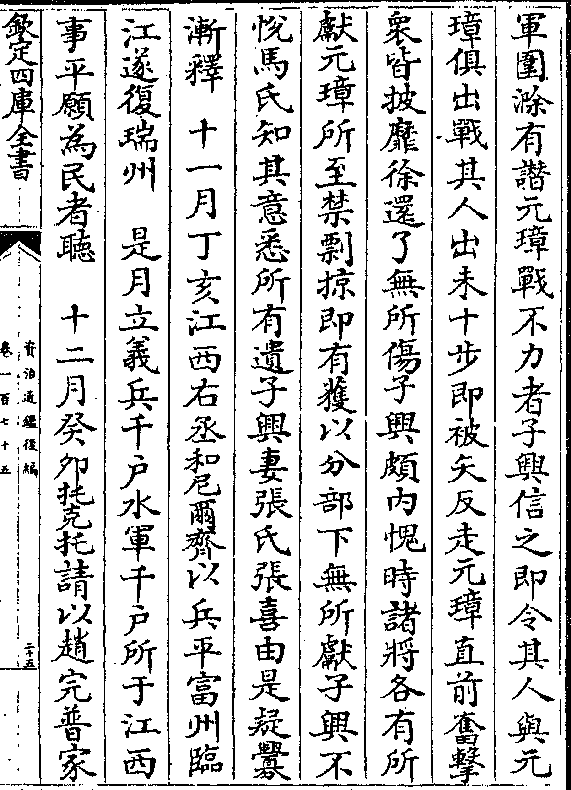 軍圍滁有譖元璋戰不力者子興信之即令其人與元
璋俱出戰其人出未十步即被矢反走元璋直前奮擊
衆皆披靡徐還了無所傷子興頗内愧時諸將各有所
獻元璋所至禁剽掠即有獲以分部下無所獻子興不
悅馬氏知其意悉所有遺子興妻張氏張喜由是疑釁
漸釋　十一月丁亥江西右丞和尼爾齊以兵平富州臨
江遂復瑞州　是月立義兵千户水軍千户所于江西
事平願為民者聽　十二月癸卯托克托請以趙完普家
欽定四庫全書
資治通鑑後編
卷一百七十五
二十五